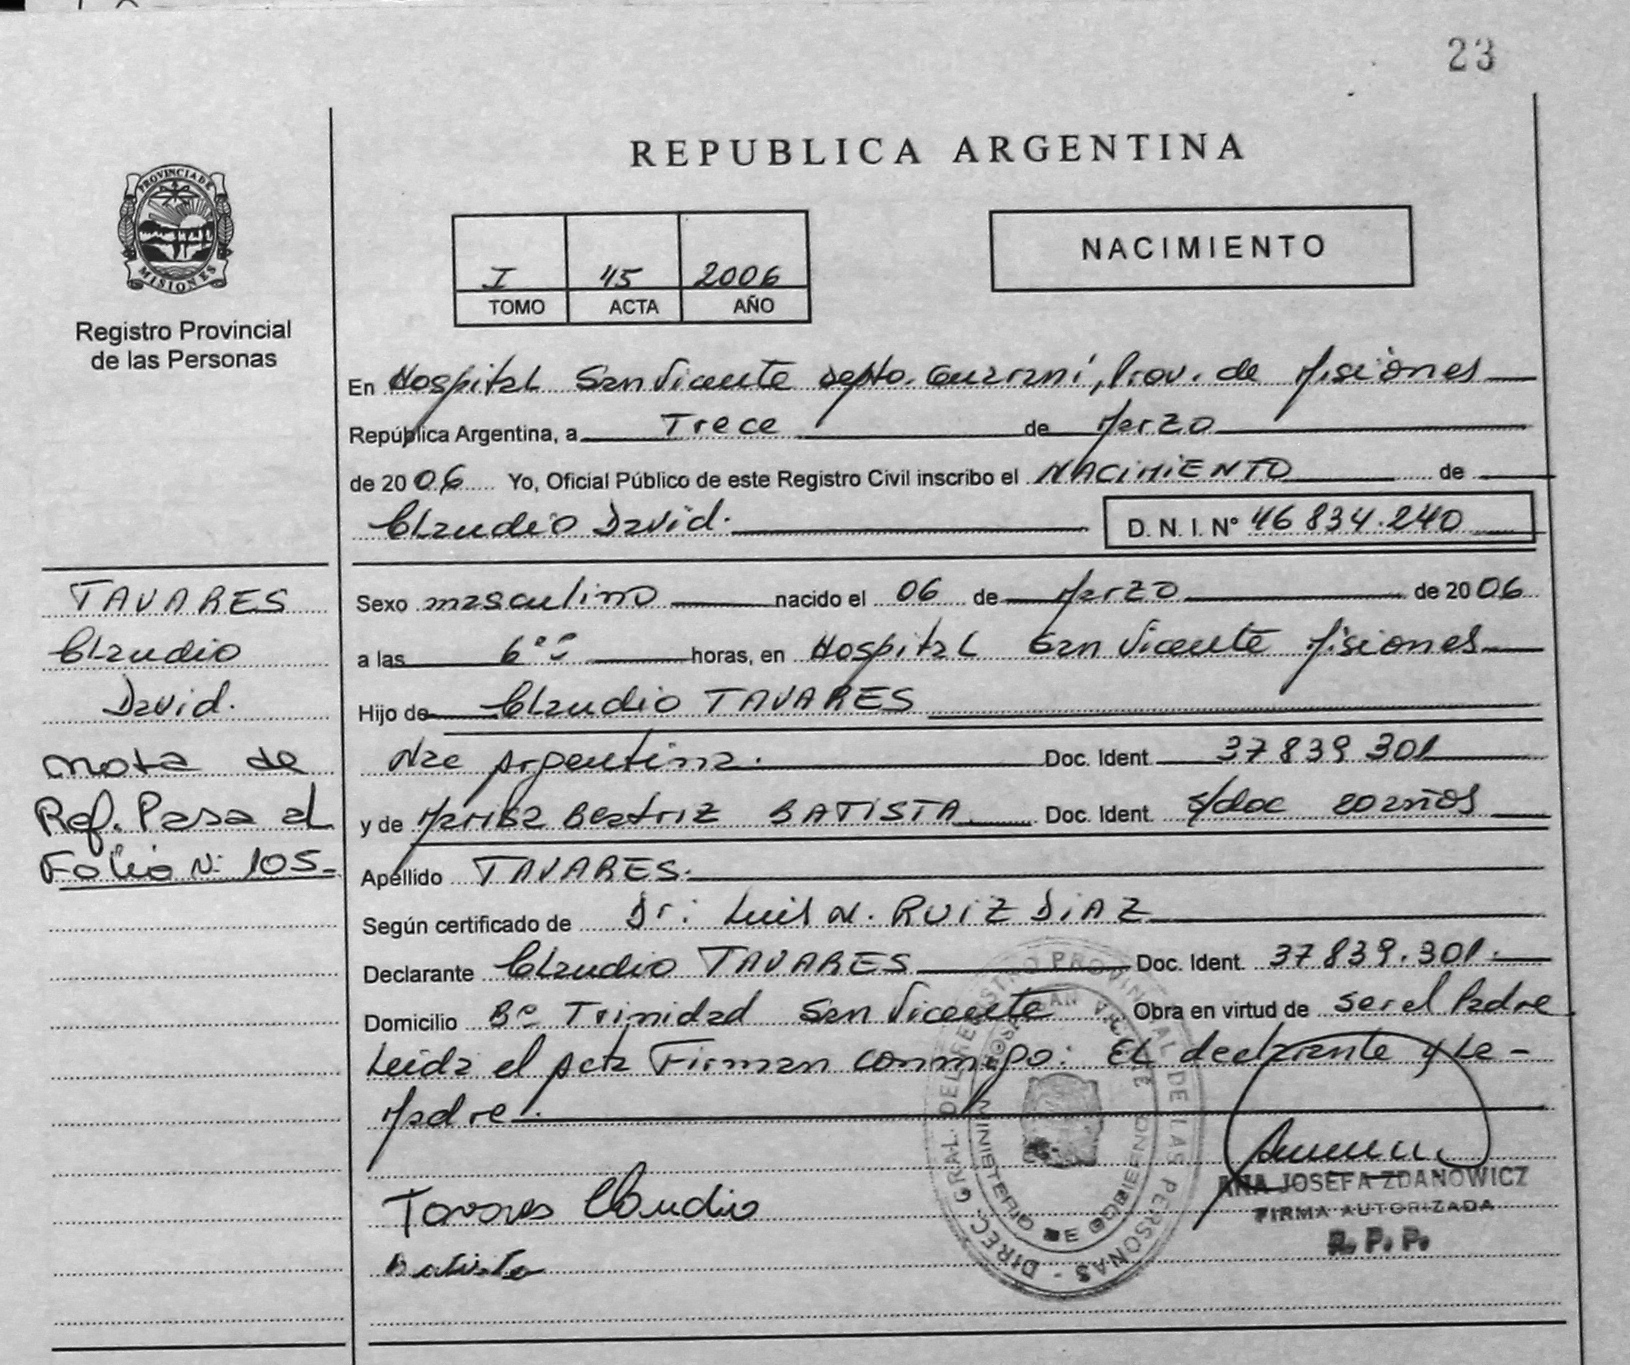 23
REPUBLICA ARGENTINA
PROVINCIA DE
MISIONES
Registro Provincial
de las Personas
I 45 2006
TOMO ACTA AÑO
NACIMIENTO
En Hospital San Vicente Depto. Guaraní, Prov. de Misiones
República Argentina, a Trece de Marzo
de 2006 Yo, Oficial Público de este Registro Civil inscribo el NACIMIENTO de
Claudio David. D. N. I. N° 46 834.240
TAVARES
Claudio
David.
Nota de
Ref. Pasa al
Folio N: 105-
Sexo masculino nacido el 06 de Marzo de 2006
a las 6 horas, en Hospital San Vicente Misiones
Hijo de Claudio TAVARES
Nac Argentina. Doc. Ident. 37 839 301
y de Beatriz BATISTA Doc. Ident. s/doc 20 años
Apellido TAVARES.
Según certificado de Dr: Luis N. RUIZ DIAZ
Declarante Claudio TAVARES Doc. Ident. 37 839.301.
Domicilio Bº Trinidad San Vicente Obra en virtud de ser el Padre
Leída el Acta Firman conmigo: El declarante y La-
Madre.
DIREC. GRAL. DEL REGISTRO PROVINCIAL DE LAS PERSONAS -
MINISTERIO DE GOBIERNO
HOSP. SAN VICENTE
Tavares Claudio
Batista
ANA JOSEFA ZDANOWICZ
FIRMA AUTORIZADA
R. P. P.